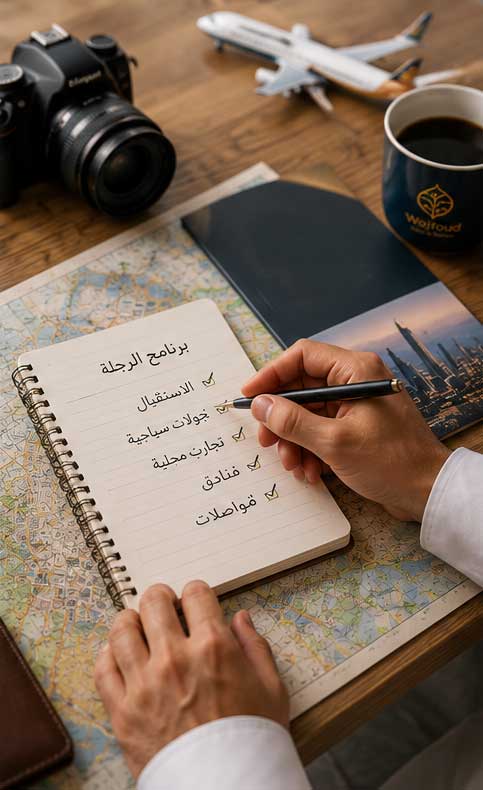 برنامج الرجلة
الاستقيال
جولات سياجية
تجارب مجلية
فنادق
مواصلات
Wojfoud